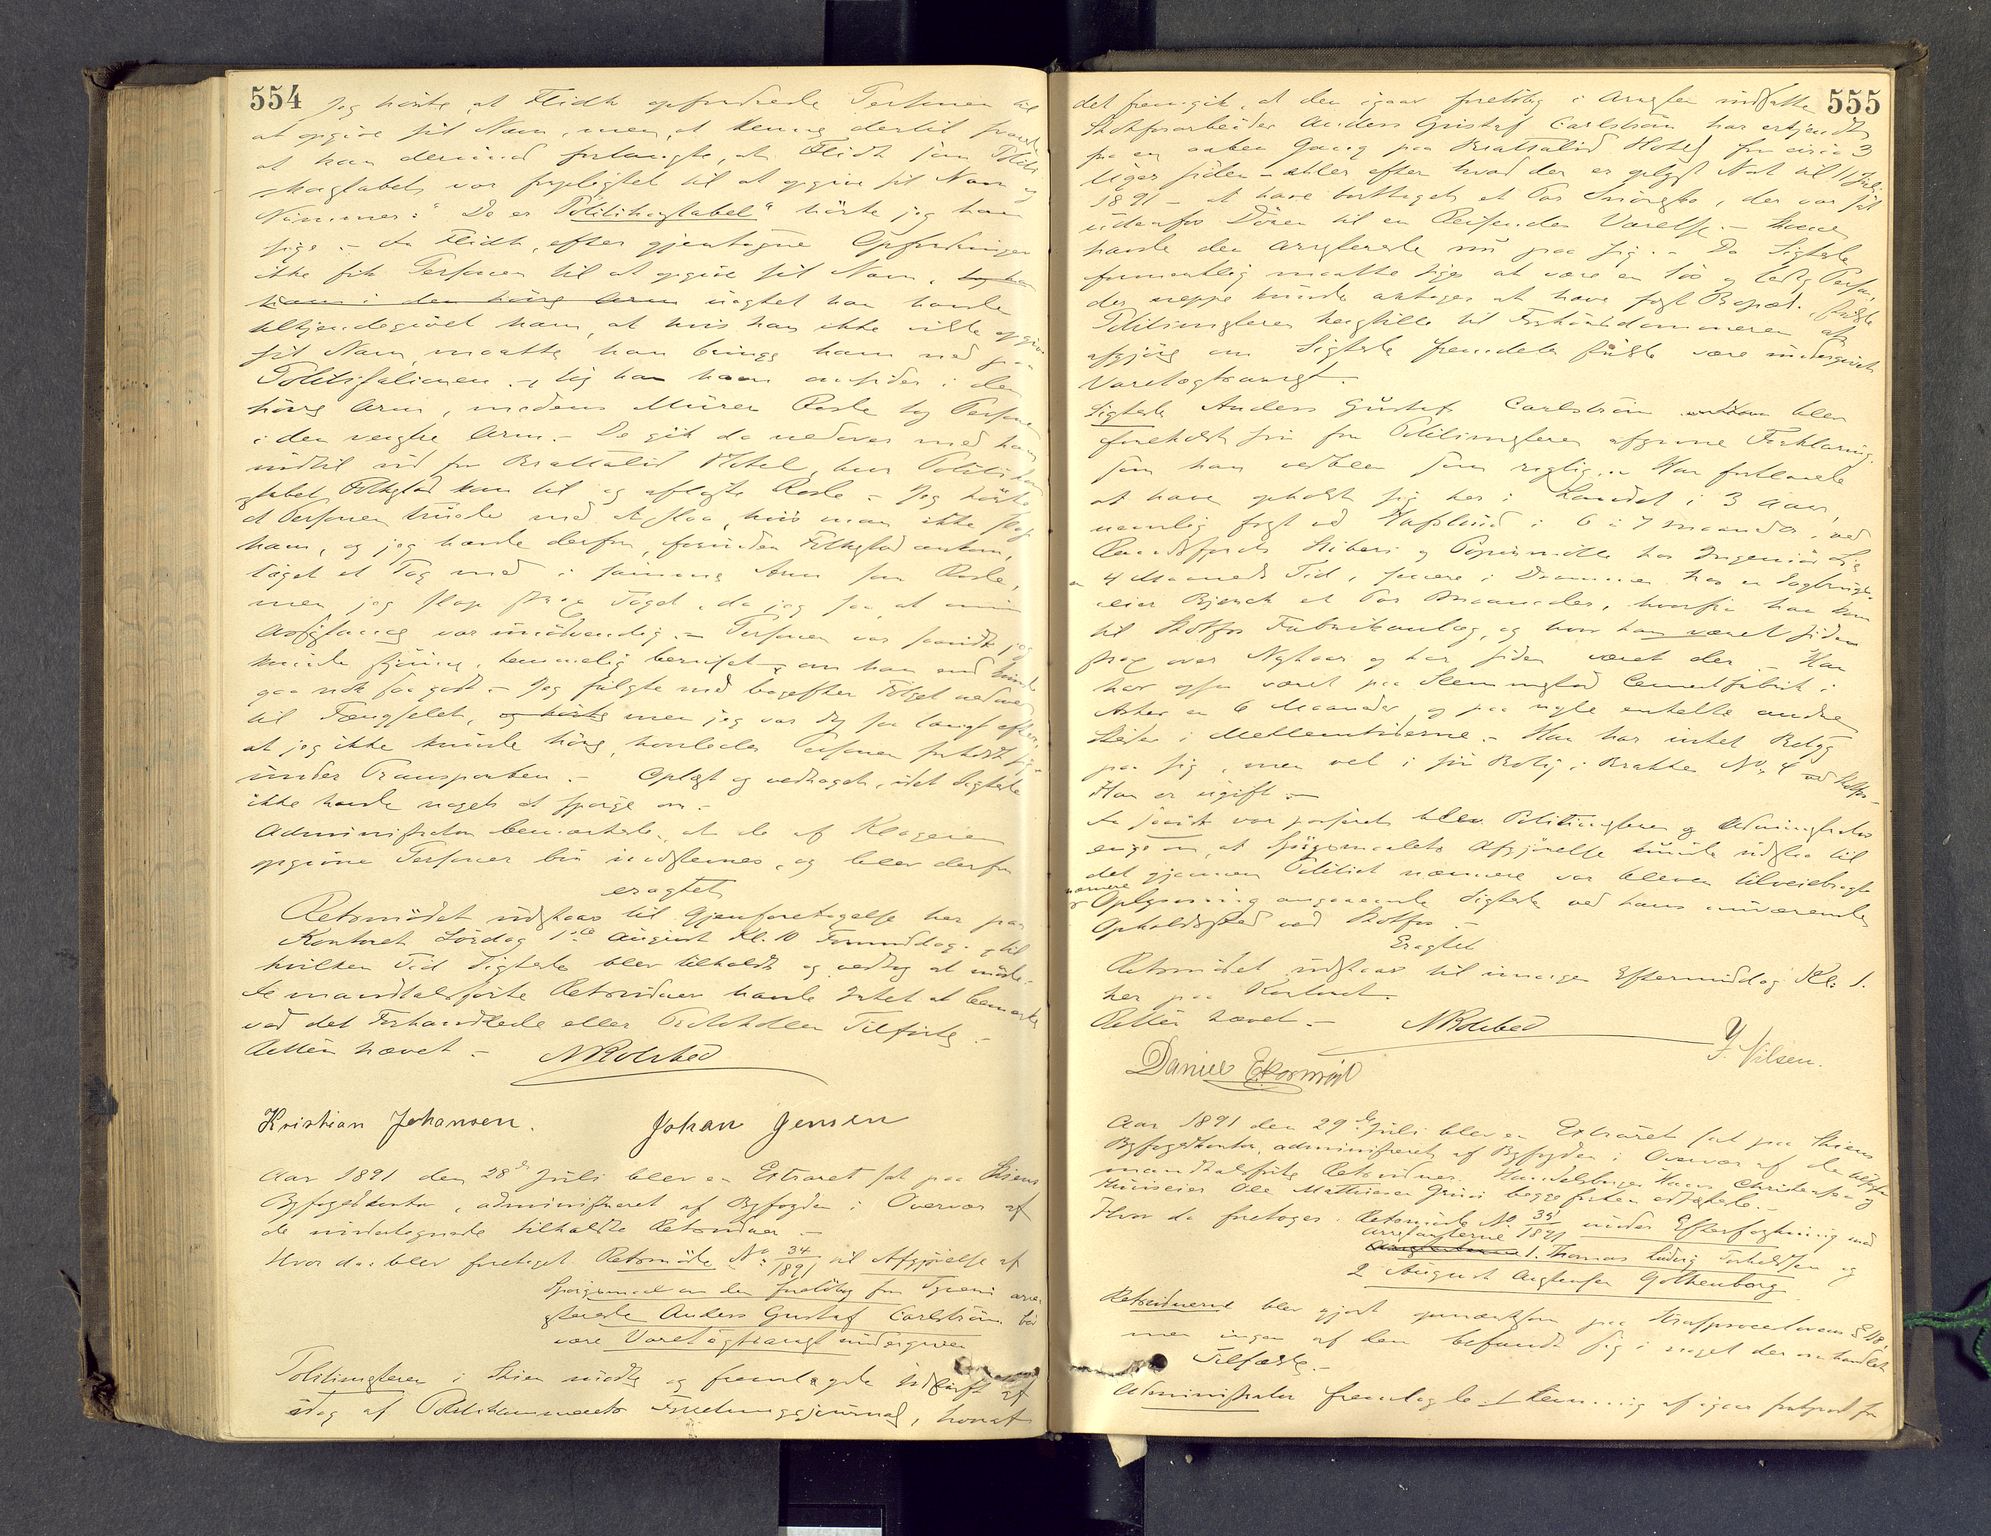 554
Jeg hørte, at Flidh opfordrede Personen til
at opgive sit Navn, men, at denne dertil svarede
at han derimod forlangte, at Flidh som Politi
konstabel var forpligtet til at opgive sit Navn og
Nummer: "De er Politikonstabel" hørte jeg ham
sige. - Da Flidh, efter gjentagne Opfordringer
ikke fik Personen til at opgive sit Navn, tog han
ham i den høire Arm uagtet han havde
tilkjendegivet ham, at hvis han ikke vilde opgive
sit Navn, maatte han bringe ham ned paa
Politistationen. - tog han ham omsider i den
høire Arm, medens Murer Rosle tog Personen
i den venstre Arm. - De gik da nedover med ham
indtil ud for Brattalid Hotel, hvor Politikon
stabel Folkestad kom til og afløste Rosle. - Jeg hørte
at Personen truede med at slaa, hvis man ikke slap
ham, og jeg havde derfor, forinden Folkestad ankom,
taget et Tag med i samme Arm som Rosle,
men jeg slap strax Taget, da jeg saa, at min
Assistance var unødvendig. - Personen var saavidt jeg
kunde skjønne, temmelig beruset, om han end kunde
gaa nok saa godt. - Jeg fulgte med bagefter Følget nedover
til Fængslet, og hørte men jeg var dog saa langt efter,
at jeg ikke kunde høre, hvorledes Personen forholdt sig
under Transporten. - Oplæst og vedtaget, idet Sigtede
ikke havde noget at spørge om. -
Administrator bemærkede, at de af Klageren
opgivne Personer bør indstevnes, og blev derfor
eragtet
Retsmødet udstaar til Gjenforetagelse her paa
Kontoret Lørdag 1ste August Kl. 10 Formiddag. - til
hvilken Tid Sigtede blev tilholdt og vedtog at møde. -
De mandtalsførte Retsvidner havde Intet at bemærke
ved det Forhandlede eller Protokollens Tilførte. -
Retten hævet. - NRolsted
Kristian Johansen. Johan Jensen
Aar 1891 den 28de Juli blev en Extraret sat paa Skiens
Byfogedkontor, administreret af Byfogden i Overvær af
de undertegnede tilkaldte Retsvidner. -
Hvor da: blev foretaget Retsmøde No: 34/1891 til Afgjørelse af
Spørgsmaal om den foreløbig for Tyveri arre
sterede Anders Gustaf Carlström bør
være Varetægtsarrest undergiven
Politimesteren i Skien mødte og fremlagde Udskrift af
idag af Politikammerets Forretningsjournal, hvoraf
555
det fremgik, at den igaar foreløbig i Arrest indsatte
Skotfosarbeider Anders Gustaf Carlström har erkjendt
fra en aaben Gang paa Brattalid Hotel for circa 3
Uger siden - eller efter hvad der er oplyst Nat til 11 Juli
1891 - at have borttaget et Par Snøresko, der var sat
udenfor Døren til en Reisendes Værelse. - Skoene
havde den Arresterede nu paa sig. - Da Sigtede
formentlig maatte siges at være en løs og ledig Person,
der neppe kunde antages at have fast Bopæl, fandt
Politimesteren henstille til Forhørsdommeren at
afgjøre om Sigtede fremdeles skulde være undergivet
Varetægtsarrest.
Sigtede Anders Gustaf Carlström blev
foreholdt sin for Politimesteren afgivne Forklaring,
som han vedblev som rigtig. - Han forklarede
at have opholdt sig her i Landet i 3 Aar,
nemlig først ved Hafslund i 6 à 7 Maaneder, ved
Randsfjords Sliberi og Papirmølle hos Ingeniør Lie
en 4 Maaneds Tid, senere i Drammen hos en Sagbrugs-
eier Bjerck et Par Maaneder, hvorfra han kom
til Skotfos Fabrikanlæg, og hvor han været siden
strax over Nytaar og har siden været der. - Han
har ogsaa været paa Slemmestad Cementfabrik i
Asker en 6 Maaneder og paa nogle enkelte andre
Steder i Mellemtiderne. - Han har intet Belæg
paa sig, men vel i sin Bolig i Brakke No. 4 ved Skotfos. -
Han er ugift. -
Da saavidt var passeret blev Politimesteren og Administrator
enige om, at Spørgsmaalets Afgjørelse kunde udstaa til
det gjennem Politiet nærmere var bleven tilveiebragt
nærmere Oplysning angaaende Sigtede ved hans nuværende
Opholdssted ved Skotfos. -
Eragtet
Retsmødet udstaar til imorgen Eftermiddag Kl. 1.
her paa Kontoret.
Retten hævet. - NRolsted
Y. Nilsen.
Daniel Ekornrød
Aar 1891 den 29de Juli blev en Extraret sat paa Skiens
Byfogedkontor, administreret af Byfogden i Overvær af de tilkaldte
mandtalsførte Retsvidner, Handelsborger Hans Christensen og
Huuseier Ole Mathiesen Grini begge forhen edfæstede. -
Hvor da foretoges: Retsmøde No 35/1891 under Efterforskning mod
Arrestanterne
1. Thomas Ludvig Torkelssen og
2 August Axelsen Gothenborg.
Retsvidnerne blev gjort opmærksom paa Straffeproceslovens § 118,
men ingen af dem befandt sig i noget der omhandlet
Tilfælde. -
Administrator fremlagde 1 Stevning af igaar forkyndt for